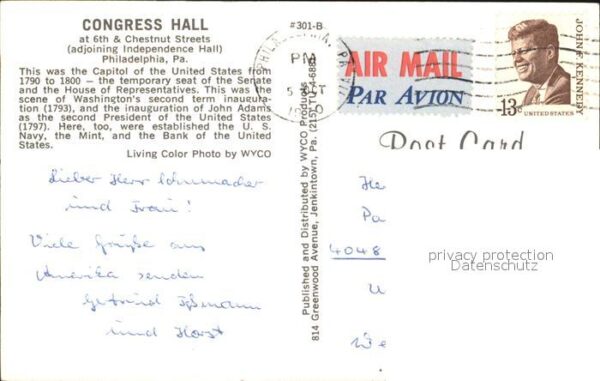 CONGRESS HALL
at 6th & Chestnut Streets
(adjoining Independence Hall)
Philadelphia, Pa.
This was the Capitol of the United States from
1790 to 1800 – the temporary seat of the Senate
and the House of Representatives. This was the
scene of Washington's second term inaugura-
tion (1793), and the inauguration of John Adams
as the second President of the United States
(1797). Here, too, were established the U. S.
Navy, the Mint, and the Bank of the United
States.
Living Color Photo by WYCO
Lieber Herr Schumacher
und Frau!
Viele Grüße aus
Amerika senden
Gertrud
und Horst
#301-B
Published and Distributed by WYCO Products
814 Greenwood Avenue, Jenkintown, Pa. (215) TU
PHILADELPHIA, PA
PM
5 OCT
AIR MAIL
PAR AVION
JOHN F. KENNEDY
13c
UNITED STATES
Post Card
He
Pa
4048
U
We
privacy protection
Datenschutz